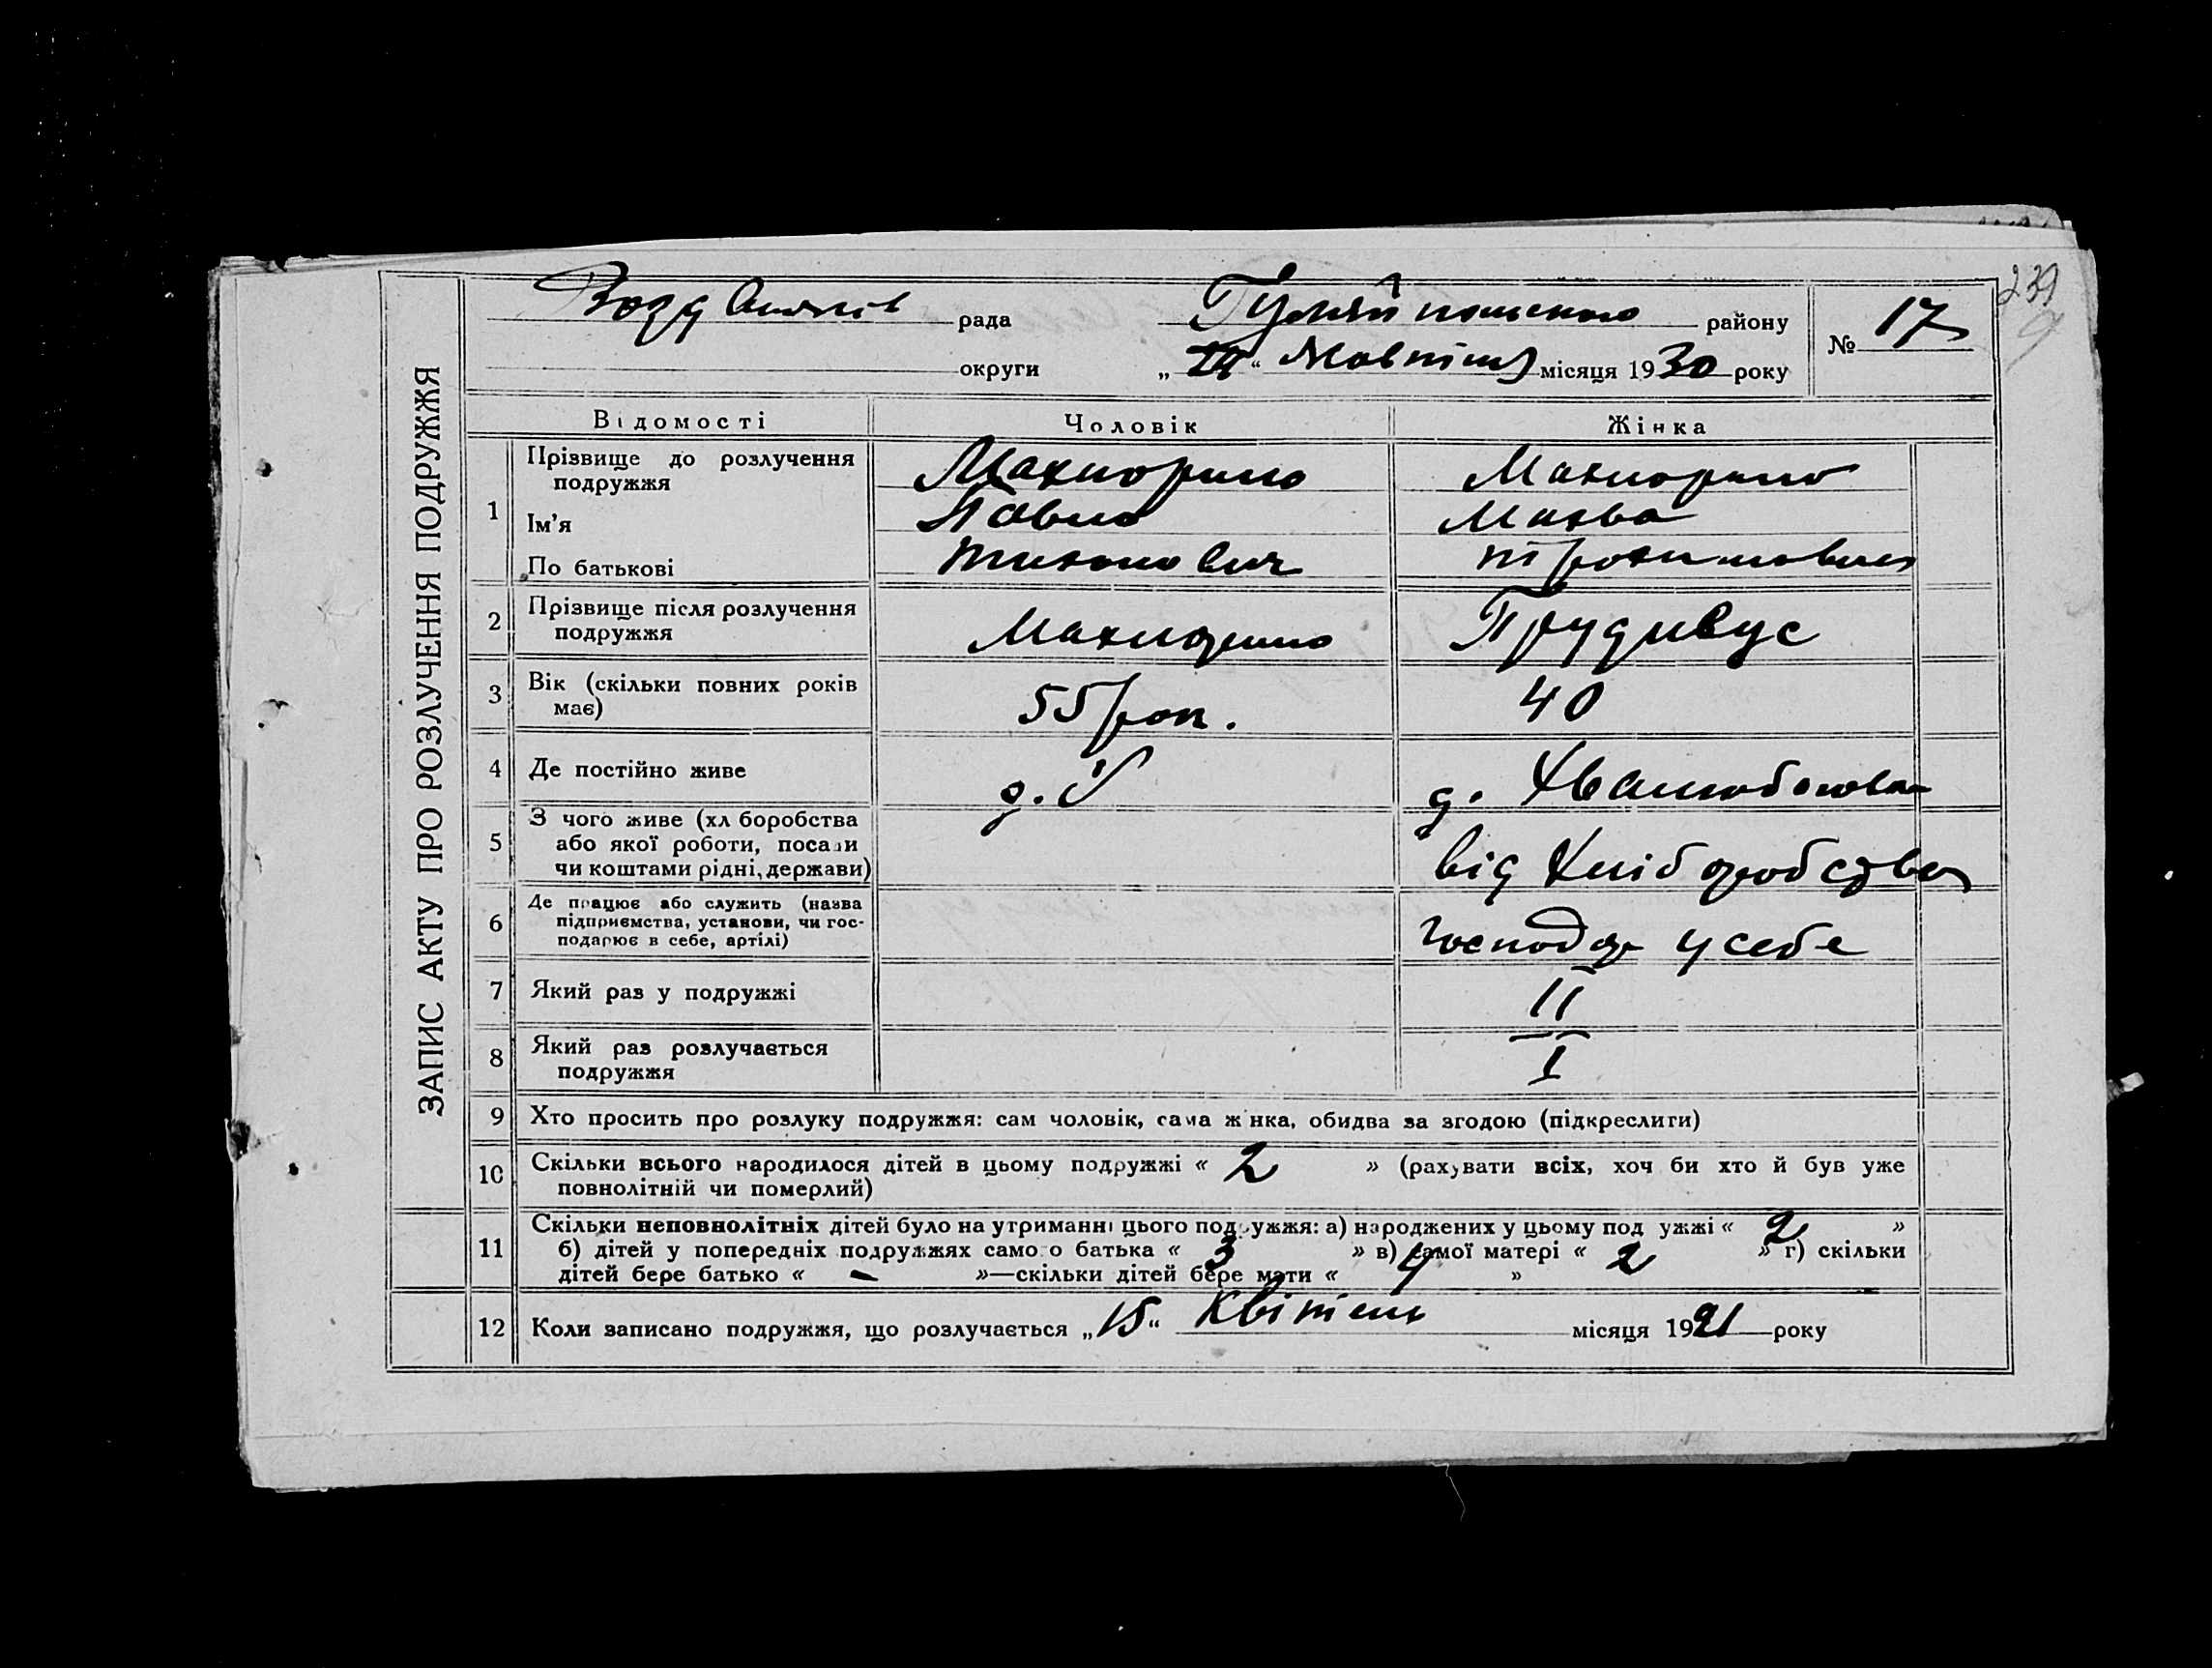 239
рада
Гуляйпільского району
№ 17
округи
„14“ Жовтня місяця 1930 року
ЗАПИС АКТУ ПРО РОЗЛУЧЕННЯ ПОДРУЖЖЯ
Відомості Чоловік Жінка
1 Прізвище до розлучення подружжя
Ім'я Павло
По батькові Тихонович Трохимовна
2 Прізвище після розлучення подружжя Прудивус
3 Вік (скільки повних років має) 55 рок. 40
4 Де постійно живе д. д.
5 З чого живе (хліборобства або якої роботи, посади чи коштами рідні, держави) від Хліборобства
6 Де працює або служить (назва підприємства, установи, чи господарює в себе, артілі) господар у себе
7 Який раз у подружжі II
8 Який раз розлучається подружжя I
9 Хто просить про розлуку подружжя: сам чоловік, сама жінка, обидва за згодою (підкреслити)
10 Скільки всього народилося дітей в цьому подружжі « 2 » (рахувати всіх, хоч би хто й був уже
повнолітній чи померлий)
11 Скільки неповнолітніх дітей було на утриманні цього подружжя: а) народжених у цьому подружжі « 2 »
б) дітей у попередніх подружжях самого батька « 3 » в) самої матері « 2 » г) скільки
дітей бере батько « - »—скільки дітей бере мати « 4 »
12 Коли записано подружжя, що розлучається „15“ Квітень місяця 1921 року